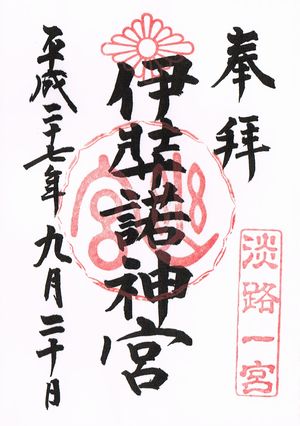 奉拝
伊弉諾神宮
淡路一宮
平成二十七年九月二十日